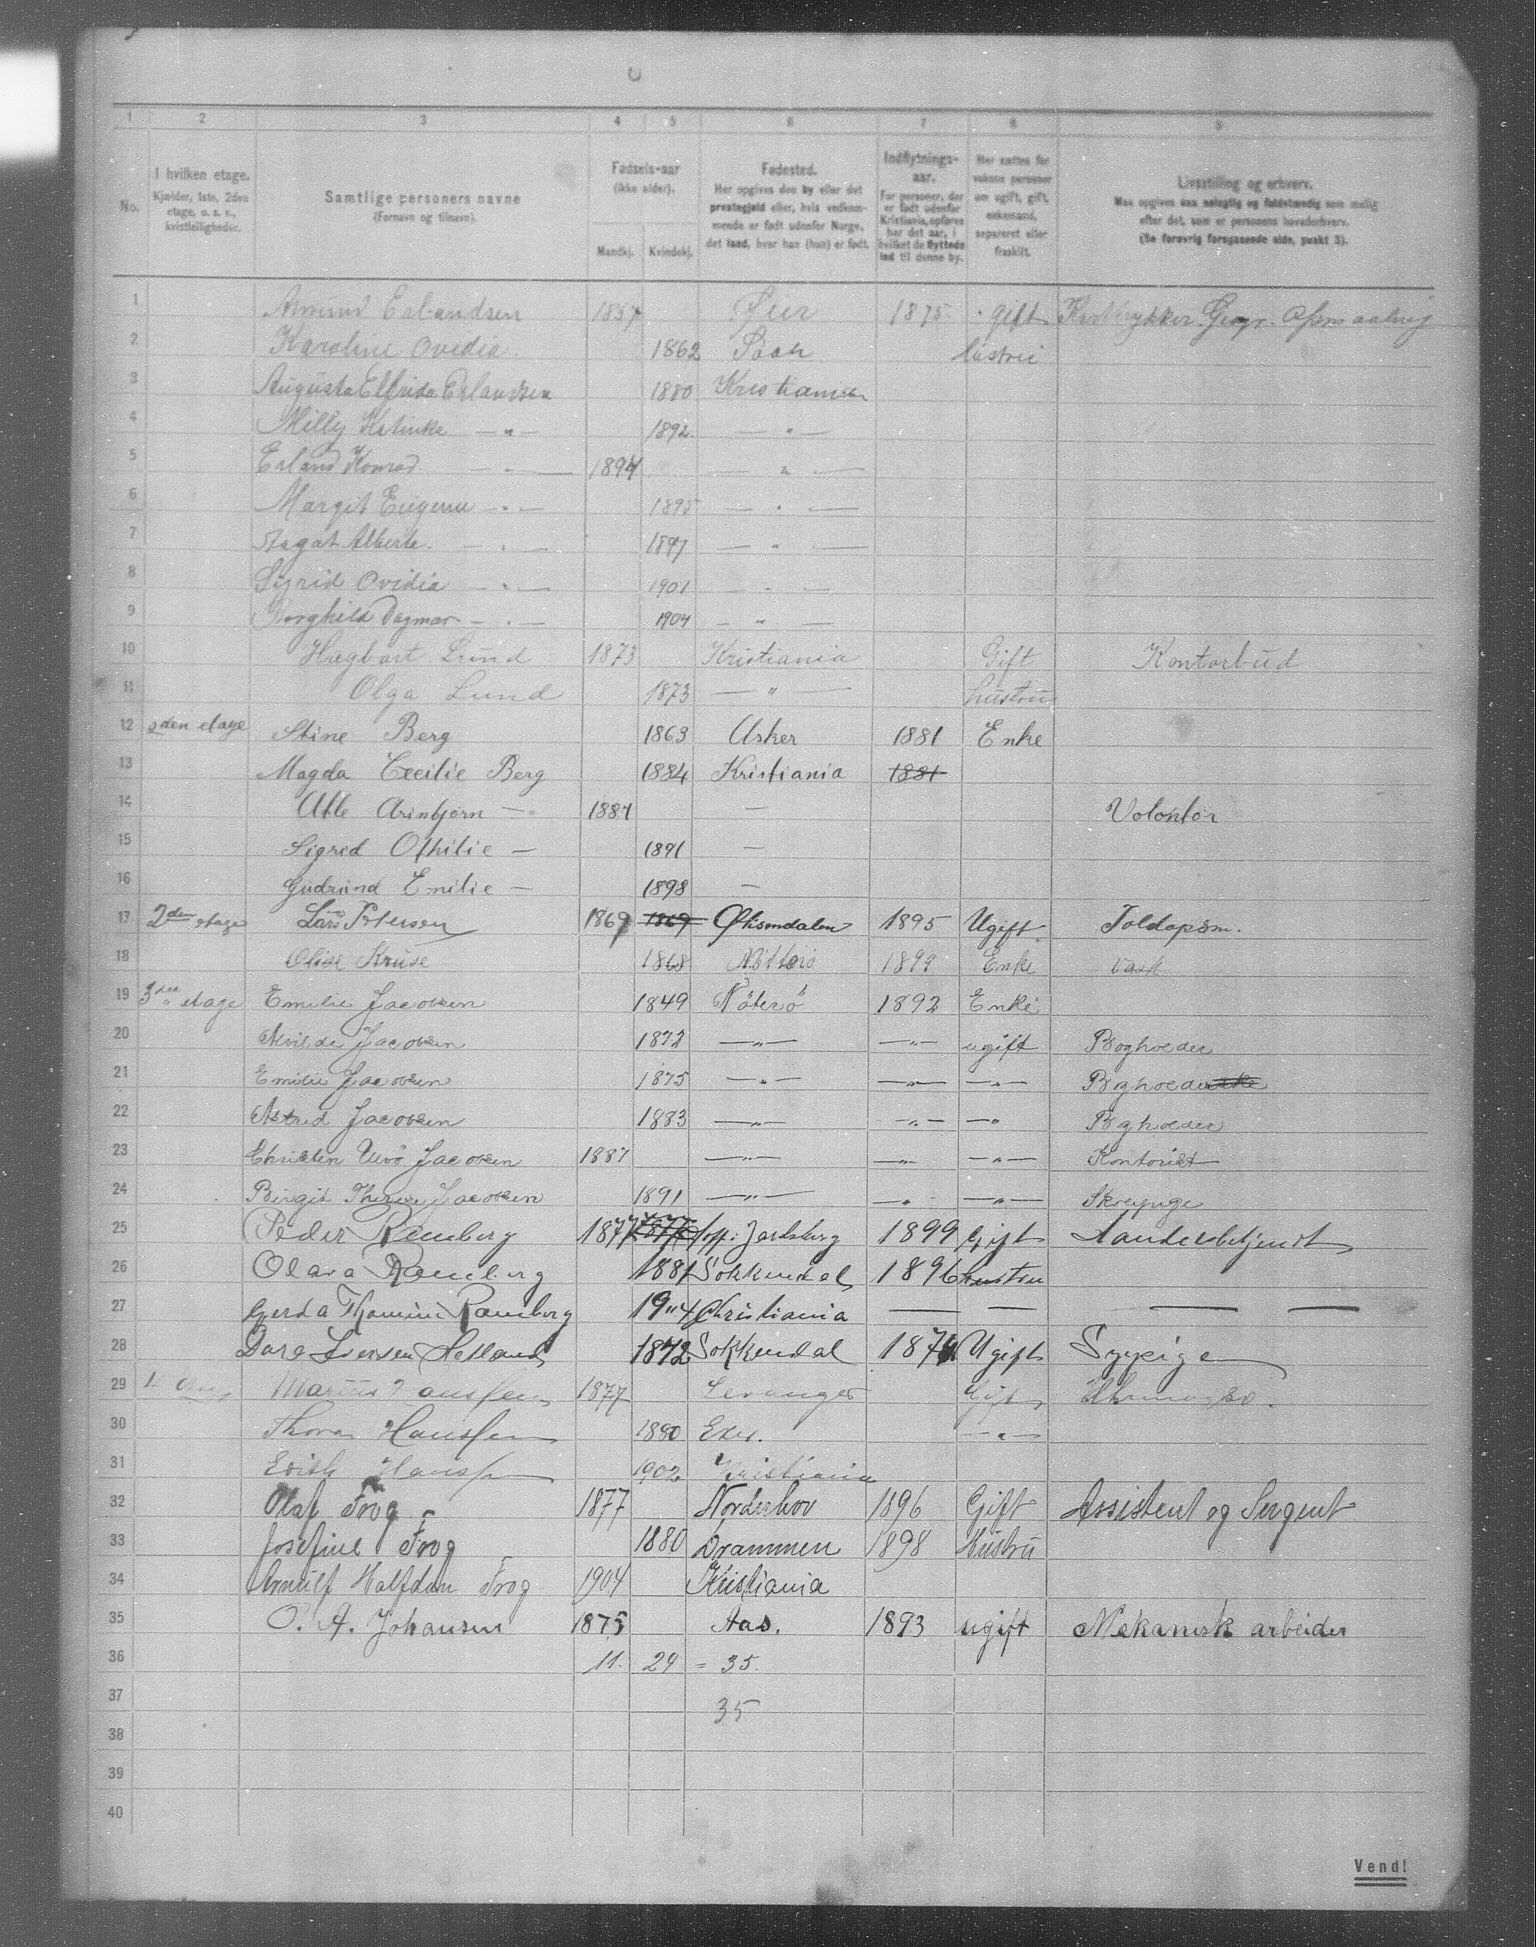 1 2 3 4 5 6 7 8 9
No.
I hvilken etage.
Kjælder, 1ste, 2den
etage, o. s. v.,
kvistleiligheder.
Samtlige personers navne
(Fornavn og tilnavn).
Fødsels-aar
(ikke alder).
Mandkj. Kvindekj.
Fødested.
Her opgives den by eller det
prestegjeld eller, hvis vedkom-
mende er født udenfor Norge,
det land, hvor han (hun) er født.
Indflytnings-
aar.
For personer, der
er født udenfor
Kristiania, opføres
her det aar, i
hvilket de flyttede
ind til denne by.
Her sættes for
voksne personer
om ugift, gift,
enkemand,
separeret eller
fraskilt.
Livsstilling og erhverv.
Maa opgives saa nøiagtig og fuldstændig som mulig
efter det, som er personens hovederhverv.
(Se forøvrig foregaaende side, punkt 3).
1 Amund Erlandsen 1857 Øier 1875 gift
2 Karoline Ovedia 1862 hustru
3 Augusta Elfrida Erlandsen 1880 Kristiania
4 Milly Katinka — " — 1892 — " —
5 Erland Konrad — " — 1894 — " —
6 Margit Eugenie — " — 1895 — " —
7 Aagot Alberte — " — 1897 — " —
8 Sigrid Ovidia — " — 1901 — " —
9 Borghild Dagmar — " — 1904 — " —
10 Hagbart Lund 1873 Kristiania Gift Kontorbud
11 Olga Lund 1873 — " — hustru
12 2den etage Stine Berg 1863 Asker 1881 Enke
13 Magda Cecilie Berg 1884 Kristiania 1881
14 Atle Arinbjørn — 1887 — Volontør
15 Sigrid Othilie — 1891 —
16 Gudrund Emilie — 1898 —
17 2den etage Lars Petersen 1869 1869 Øksendalen 1895 Ugift Toldopsm.
18 Olise Kruse 1868 Nötterö 1899 Enke Vask
19 3die etage Emilie Jacobsen 1849 Nöterö 1892 Enke
20 Alvilde Jacobsen 1872 — " — — " — ugift Bogholder
21 Emilie Jacobsen 1875 — " — — " — — " — Bogholderske
22 Astrid Jacobsen 1883 — " — — " — — " Bogholder
23 Christen Uvo Jacobsen 1887 — " — — " — — " — Kontorist
24 Birgit Therese Jacobsen 1891 — " — — " — — " — Skolepige
25 Peder Ramberg 1877 1877 Jarlsberg 1899 Gift
26 Olava Ramberg 1881 Sokkendal 1896 hustru
27 Gerda Thomine Ramberg 1904 Christiania — — — —
28 Iversen Hetland 1872 Sokkendal Ugift Sypige
29 Marius Hanssen 1877 Levanger Gift
30 Thora Hanssen 1880 — " —
31 Edith Hanssen 1902 Kristiania
32 Olaf Frog 1877 Norderhov 1896 Gift Assistent og Sergent
33 Josefine Frog 1880 Drammen 1898 Hustru
34 Arnulf Halfdan Frog 1904 Kristiania
35 O. A. Johansen 1875 Aas. 1893 ugift Mekanisk arbeider
36 11. 24 = 35.
37 35
38
39
40
Vend!